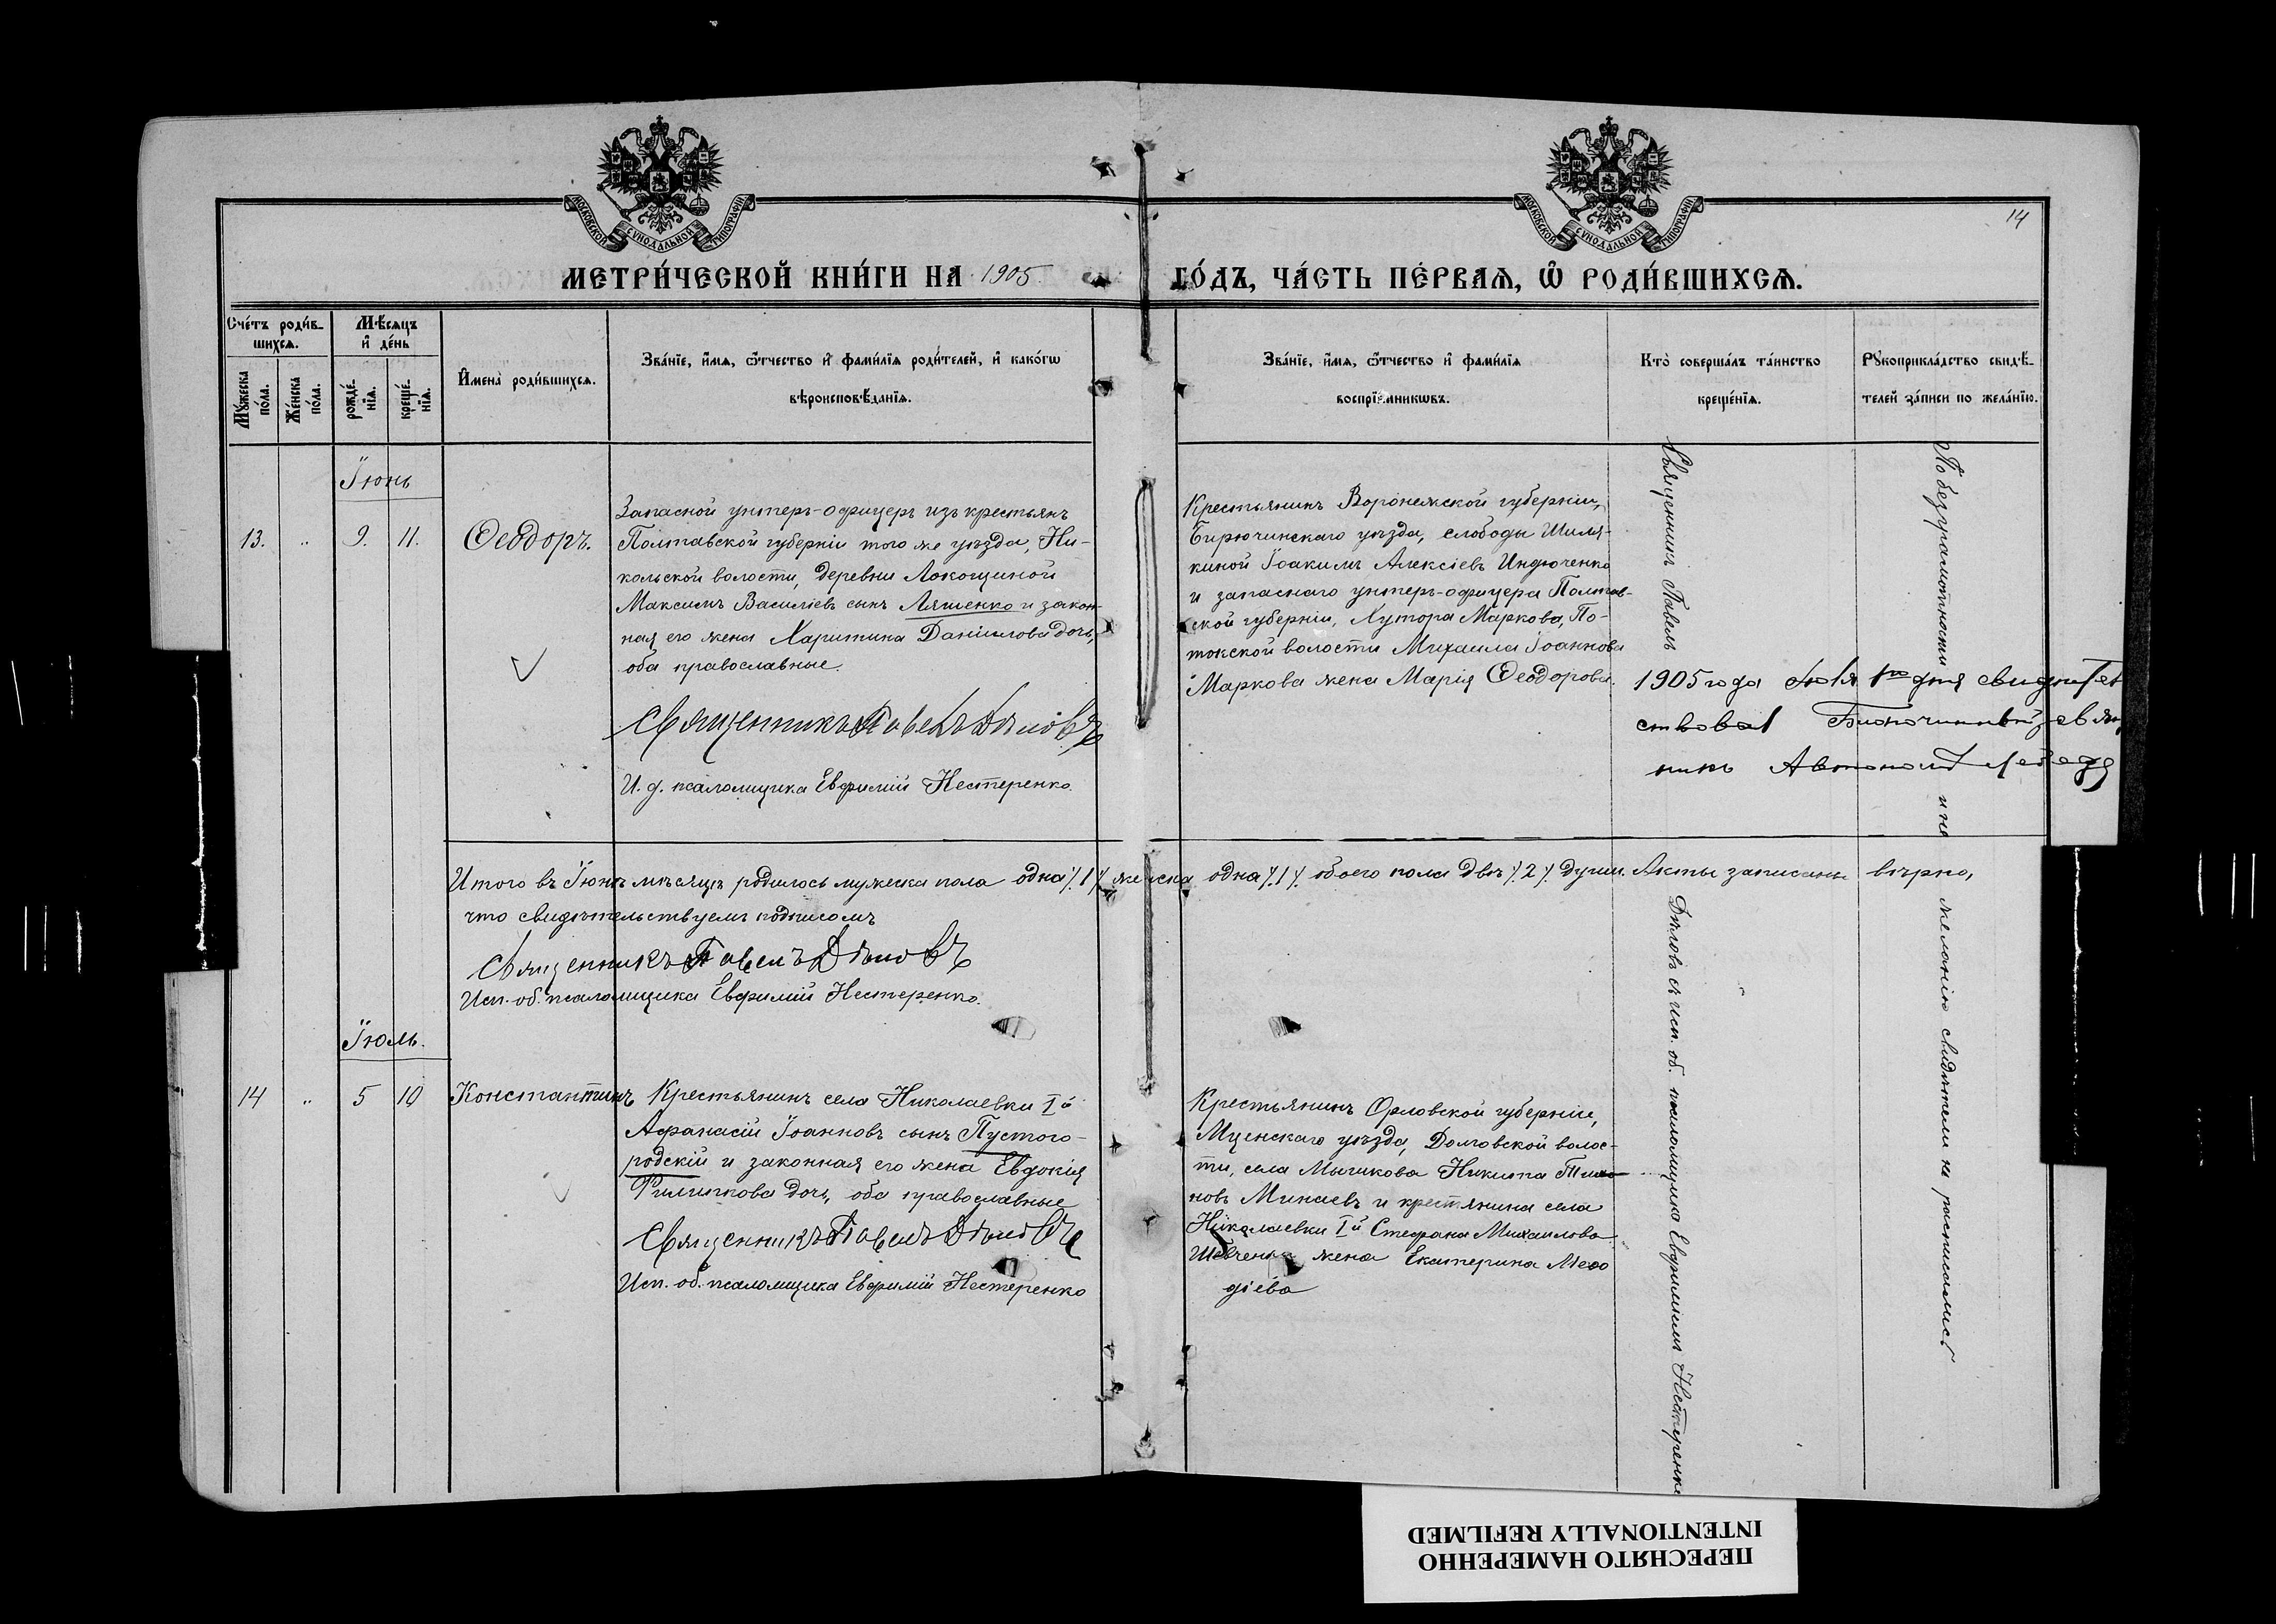 14
МЕТРИ́ЧЕСКОЙ КНИ́ГИ НА 1905 ГО́ДЪ, ЧА́СТЬ ПЕ́РВАЯ, Ѿ РОДИ́ВШИХСЯ.
Сче́тъ роди́в-
шихся.
Мꙋ́жеска по́ла.
Же́нска по́ла.
Мѣ́сяцъ и҆ де́нь
рожде́-нїя.
креще́-нїя.
И҆мена̀ роди́вшихся.
Зва́нїе, и҆́мя, ѻ҆́тчество и҆ фами́лїя роди́телей, и҆ како́гѡ
вѣроисповѣ́данїя.
Зва́нїе, и҆́мя, ѻ҆́тчество и҆ фами́лїя
воспрїе́мникѡвъ.
Кто̀ соверша́лъ та́инство
креще́нїя.
Рꙋкоприкла́дство свидѣ́-
телей за́писи по жела́нїю.
Іюнь
13. „ 9. 11. Ѳеодоръ.
Запасной унтеръ-офицеръ изъ крестьянъ
Полтавской губерніи того же уѣзда, Ни-
кольской волости, деревни Локощиной
Максимъ Василіевъ сынъ Ляшенко и закон-
ная его жена Харитина Даніилова дочь,
оба православные.
Священникъ Павелъ Дѣловъ
И. д. псаломщика Евфимій Нестеренко.
Крестьянинъ Воронежской губерніи,
Бирюченскаго уѣзда, слободы Шиля-
киной Іоакимъ Алексіевъ Индюченко
и запаснаго унтеръ-офицера Полтав-
ской губерніи, Хутора Маркова, По-
токской волости Михаила Іоаннова
Маркова жена Марія Ѳеодорова.
Священникъ Павелъ Дѣловъ съ исп. об. псаломщика Евфиміемъ Нестеренко
По безграмотности и не желанію свидѣтели не росписались
1905 года Іюля 1го дня свидѣтел
ствовал Благочинный свящ
никъ Автоном Лебедь
Итого въ Іюнѣ мѣсяцѣ родилось мужеска пола одна ٪1٪ женска одна ٪1٪ обоего пола двѣ ٪2٪ души. Акты записаны вѣрно,
что свидѣтельствуемъ подписомъ
Священникъ Павелъ Дѣловъ
Исп. об. псаломщика Евфимій Нестеренко.
Іюль.
14 „ 5 10 Константинъ
Крестьянинъ села Николаевки Iй
Афанасій Іоанновъ сынъ Пустого-
родскій и законная его жена Евдокія
Филиппова дочь, оба православные
Священникъ Павелъ Дѣловъ
Исп. об. псаломщика Евфимій Нестеренко
Крестьянинъ Орловской губерніи,
Мценскаго уѣзда, Долговской волос-
ти, села Мышкова Никита Тимо-
новъ Минаевъ и крестянина села
Николаевки Iй Стефана Михаилова
Шевченка жена Екатерина Меѳо
діева
ПЕРЕСНЯТО НАМЕРЕННО
INTENTIONALLY REFILMED